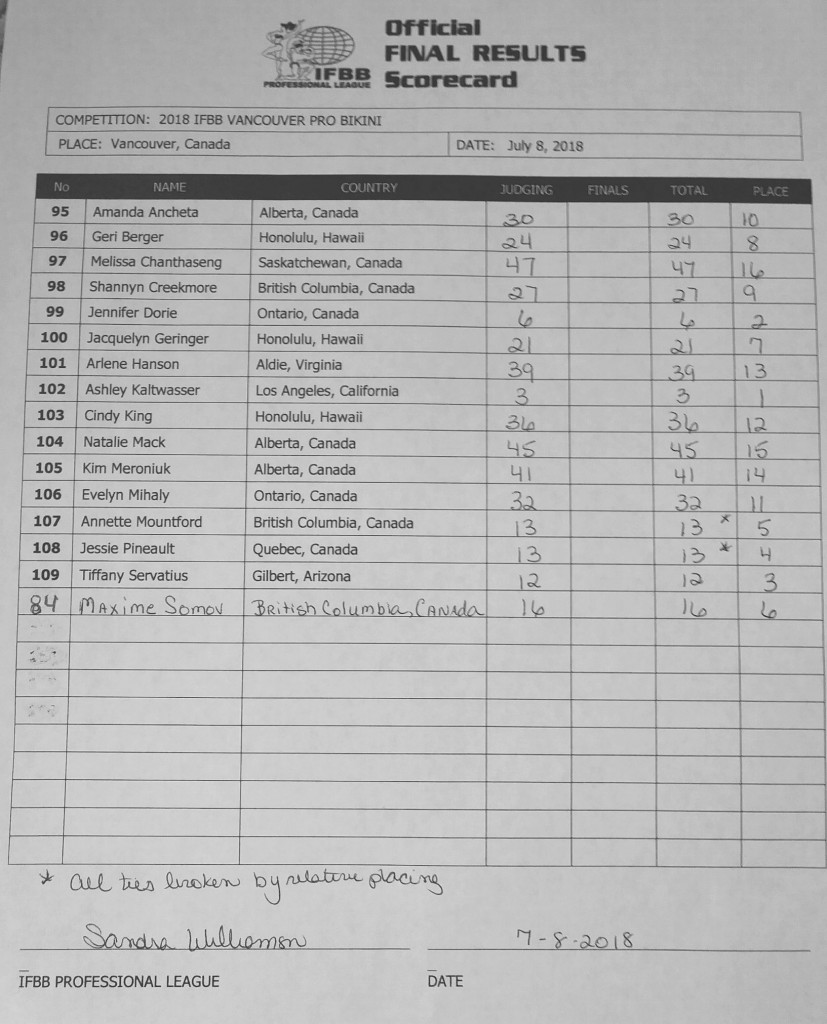 Official
FINAL RESULTS
IFBB Scorecard
PROFESSIONAL LEAGUE
COMPETITION: 2018 IFBB VANCOUVER PRO BIKINI
PLACE: Vancouver, Canada DATE: July 8, 2018
No NAME COUNTRY JUDGING FINALS TOTAL PLACE
95 Amanda Ancheta Alberta, Canada 30 30 10
96 Geri Berger Honolulu, Hawaii 24 24 8
97 Melissa Chanthaseng Saskatchewan, Canada 47 47 16
98 Shannyn Creekmore British Columbia, Canada 27 27 9
99 Jennifer Dorie Ontario, Canada 6 6 2
100 Jacquelyn Geringer Honolulu, Hawaii 21 21 7
101 Arlene Hanson Aldie, Virginia 39 39 13
102 Ashley Kaltwasser Los Angeles, California 3 3 1
103 Cindy King Honolulu, Hawaii 36 36 12
104 Natalie Mack Alberta, Canada 45 45 15
105 Kim Meroniuk Alberta, Canada 41 41 14
106 Evelyn Mihaly Ontario, Canada 32 32 11
107 Annette Mountford British Columbia, Canada 13 13 * 5
108 Jessie Pineault Quebec, Canada 13 13 * 4
109 Tiffany Servatius Gilbert, Arizona 12 12 3
84 Maxime Somov British Columbia, Canada 16 16 6
* all ties broken by relative placing
Sandra Williamson 7-8-2018
IFBB PROFESSIONAL LEAGUE DATE